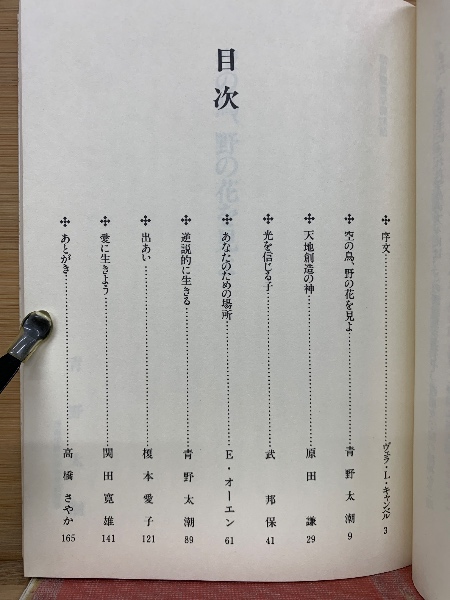 目次
✣ 序文……ヴェラ・L・キャンベル 3
✣ 空の鳥、野の花を見よ……青野太潮 9
✣ 天地創造の神……原田謙 29
✣ 光を信じる子……武邦保 41
✣ あなたのための場所……E・オーエン 61
✣ 逆説的に生きる……青野太潮 89
✣ 出あい……榎本愛子 121
✣ 愛に生きよう……関田寛雄 141
✣ あとがき……高橋さやか 165